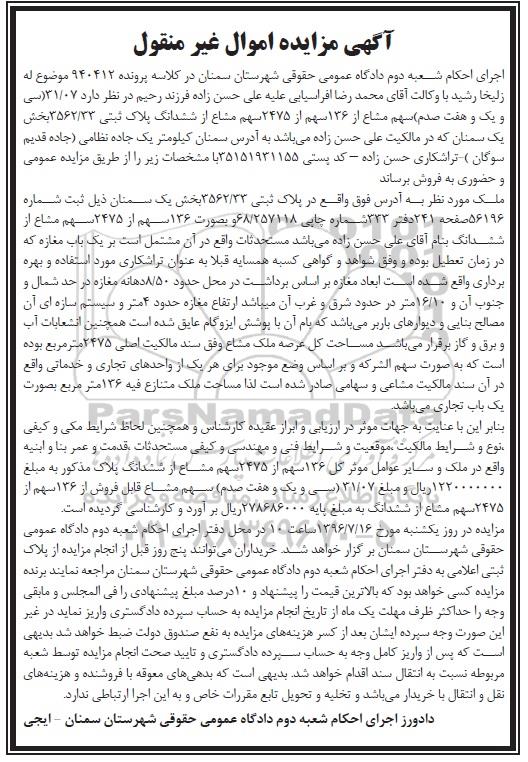 آگهی مزایده اموال غیر منقول
اجرای احکام شعبه دوم دادگاه عمومی حقوقی شهرستان سمنان در کلاسه پرونده ۹۴۰۴۱۲ موضوع له
زلیخا رشید با وکالت آقای محمد رضا افراسیابی علیه علی حسن زاده فرزند رحیم در نظر دارد ۳۱/۰۷(سی
و یک و هفت صدم)سهم مشاع از ۱۳۶سهم از ۲۴۷۵سهم مشاع از ششدانگ پلاک ثبتی ۳۵۶۲/۳۳بخش
یک سمنان که در مالکیت علی حسن زاده می‌باشد به آدرس سمنان کیلومتر یک جاده نظامی (جاده قدیم
سوگان )–تراشکاری حسن زاده – کد پستی ۳۵۱۵۱۹۳۱۱۵۵با مشخصات زیر را از طریق مزایده عمومی
و حضوری به فروش برساند
ملک مورد نظر به آدرس فوق واقع در پلاک ثبتی ۳۵۶۲/۳۳بخش یک سمنان ذیل ثبت شماره
۵۶۱۹۶صفحه ۲۴۱دفتر ۳۳۳شماره چاپی ۶۸/۲۵۷۱۱۸و بصورت ۱۳۶سهم از ۲۴۷۵سهم مشاع از
ششدانگ بنام آقای علی حسن زاده می‌باشد مستحدثات واقع در آن مشتمل است بر یک باب مغازه که
در زمان تعطیل بوده و وفق شواهد و گواهی کسبه همسایه قبلا به عنوان تراشکاری مورد استفاده و بهره
برداری واقع شده است ابعاد مغازه بر اساس برداشت در محل حدود ۸/۵۰دهانه مغازه در حد شمال و
جنوب آن و ۱۶/۱۰متر در حدود شرق و غرب آن میباشد ارتفاع مغازه حدود ۴متر و سیستم سازه ای آن
مصالح بنایی و دیوارهای باربر می‌باشد که بام آن با پوشش ایزوگام عایق شده است همچنین انشعابات آب
و برق و گاز برقرار می‌باشد مساحت کل عرصه ملک مشاع وفق سند مالکیت اصلی ۲۴۷۵مترمربع بوده
است که به صورت سهم الشرکه و بر اساس وضع موجود برای هر یک از واحدهای تجاری و خدماتی واقع
در آن سند مالکیت مشاعی و سهامی صادر شده است لذا مساحت ملک متنازع فیه ۱۳۶متر مربع بصورت
یک باب تجاری می‌باشد.
بنابر این با عنایت به جهات موثر در ارزیابی و ابراز عقیده کارشناس و همچنین لحاظ شرایط مکی و کیفی
،نوع و شرایط مالکیت ،موقعیت و شرایط فنی و مهندسی و کیفی مستحدثات ،قدمت و عمر بنا و ابنیه
واقع در ملک و سایر عوامل موثر کل ۱۳۶سهم از ۲۴۷۵سهم مشاع از ششدانگ پلاک مذکور به مبلغ
۱۲۲۰۰۰۰۰۰۰ریال و مبلغ ۳۱/۰۷ (سی و یک و هفت صدم) سهم مشاع قابل فروش از ۱۳۶سهم از
۲۴۷۵سهم مشاع از ششدانگ به مبلغ پایه ۲۷۸۶۸۶۰۰۰ریال بر آورد و کارشناسی گردیده است.
مزایده در روز یکشنبه مورخ ۱۳۹۶/۷/۱۶ساعت ۱۰ در محل دفتر اجرای احکام شعبه دوم دادگاه عمومی
حقوقی شهرستان سمنان بر گزار خواهد شد. خریداران می‌توانند پنج روز قبل از انجام مزایده از پلاک
ثبتی اعلامی به دفتر اجرای احکام شعبه دوم دادگاه عمومی حقوقی شهرستان سمنان مراجعه نمایند برنده
مزایده کسی خواهد بود که بالاترین قیمت را پیشنهاد و ۱۰درصد مبلغ پیشنهادی را فی المجلس و مابقی
وجه را حداکثر ظرف مهلت یک ماه از تاریخ انجام مزایده به حساب سپرده دادگستری واریز نماید در غیر
این صورت وجه سپرده ایشان بعد از کسر هزینه‌های مزایده به نفع صندوق دولت ضبط خواهد شد بدیهی
است که پس از واریز کامل وجه به حساب سپرده دادگستری و تایید صحت انجام مزایده توسط شعبه
مربوطه نسبت به انتقال سند اقدام خواهد شد. بدیهی است که بدهی‌های معوقه با فروشنده و هزینه‌های
نقل و انتقال با خریدار می‌باشد و تخلیه و تحویل تابع مقررات خاص و به این اجرا ارتباطی ندارد.
دادورز اجرای احکام شعبه دوم دادگاه عمومی حقوقی شهرستان سمنان – ایجی
ParsNamadData